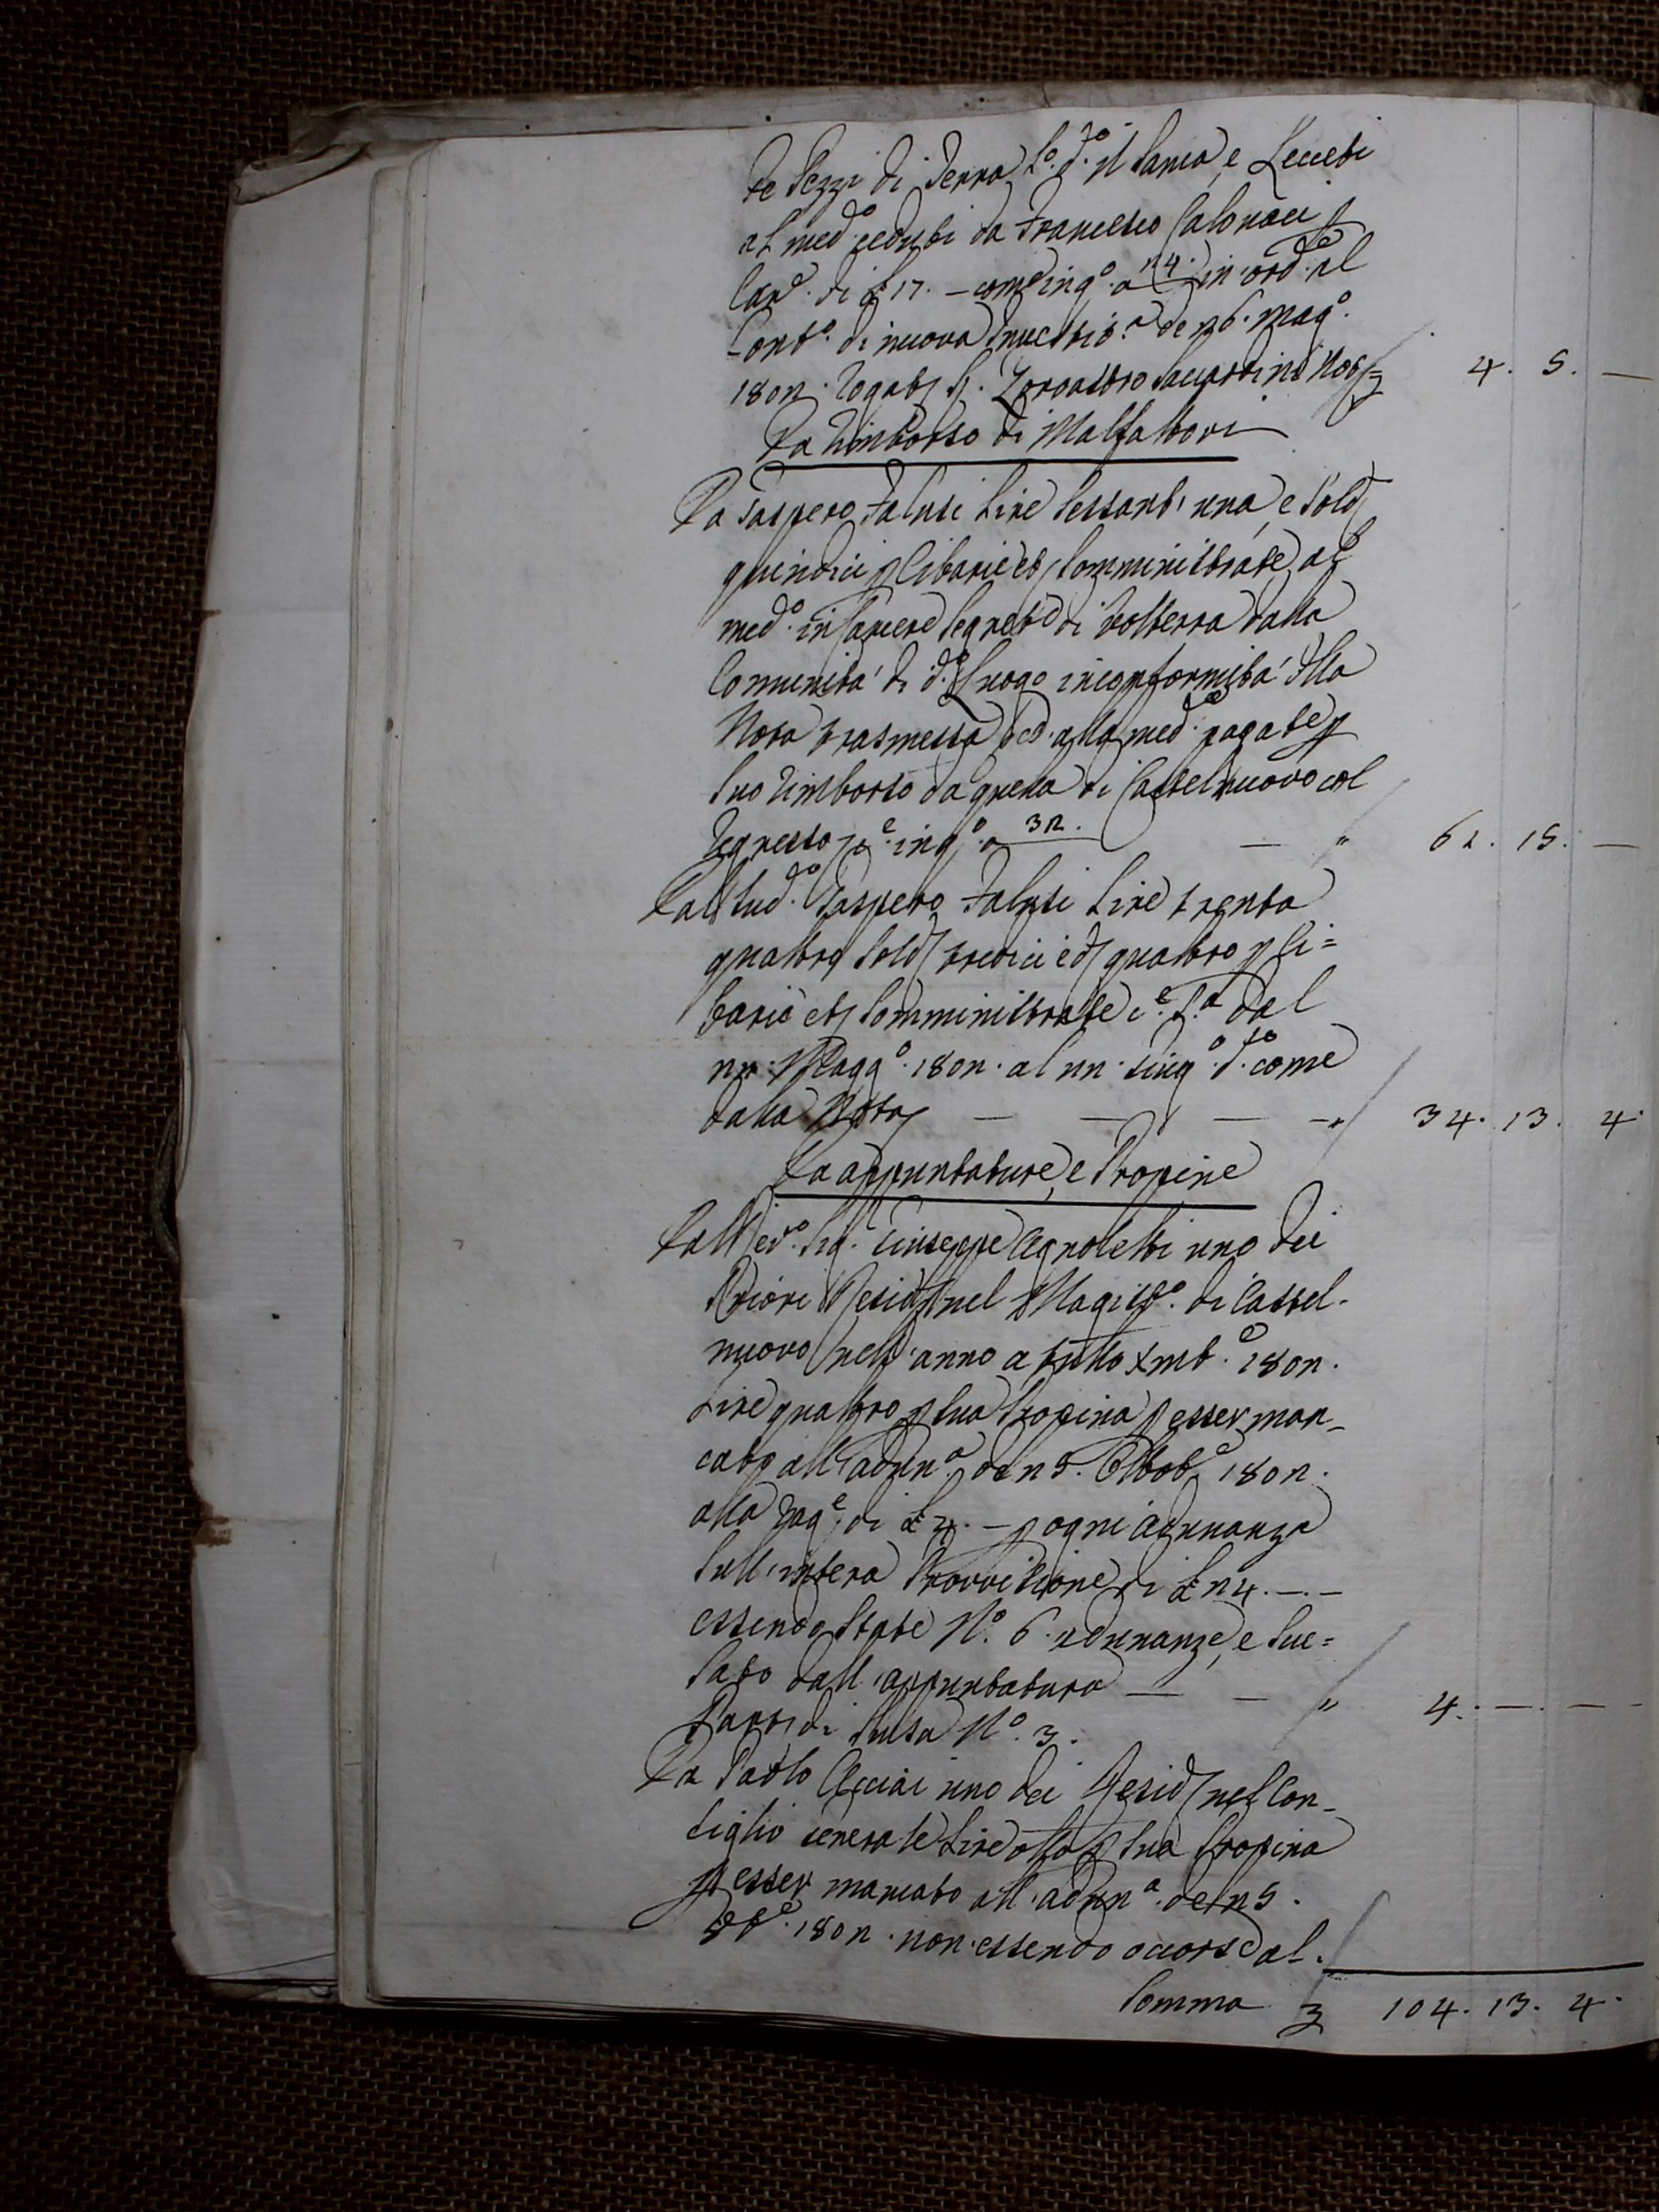 te Pezzi di Terra L.° d.to il Santo, e Lecceti
al med.° ceduti da Francesco Calonaci p
Can.e di £ 17. — come in q.° a 24. in ord.e al
Cont.° di nuova Investit.a de 26. Mag.°
1802. Rogat. S. Zoroastro Saccardini Not. = 4. 5. —
Da Rimborso di Malfattori
Da Gaspero Falusi Lire Sessant'una, e Sold
quindici p Cibarie et Somministrate al
med.° in Carcere Segreta di Volterra dalla
Comunità di d.° Luogo in conformità della
Nota trasmessa ed alla med.e pagate p
suo Rimborso da quella di Castelnuovo col
Regresso p.e in q.° a 32. — " 61. 15. —
Dal Sud.° Gaspero Falusi Lire trenta
quattro Sold tredici e d quattro p Ci=
barie et Somministrate c.e S.a dal
22. Magg.° 1802. al 22. Giug.° d.to come
dalla Nota — — — — " 34. 13. 4.
Da appuntature, e Propine
Dall' Sig. Giuseppe Agnoletti uno dei
Priori Resid nel Magist.° di Castel-
nuovo nell'anno a tutto Xmb.e 1802.
Lire quattro p sua Propina p esser man-
cato all'adun.a de 25. Ottob.e 1802.
alla Rag.e di £ 4. — p ogni adunanza
sull'intera Provvisione di £ 24. —. —
essendo State N.° 6. adunanze, e sue=
tato dall'appuntatura — — " 4. —. —
Parti di Susa N.° 3.
Da Paolo Acciai uno dei Resid nel Con-
siglio Generale Lire otto p sua Propina
p esser mancato all'adun.a de 25.
8b.e 1802. non essendo occorse al.
Somma £ 104. 13. 4.